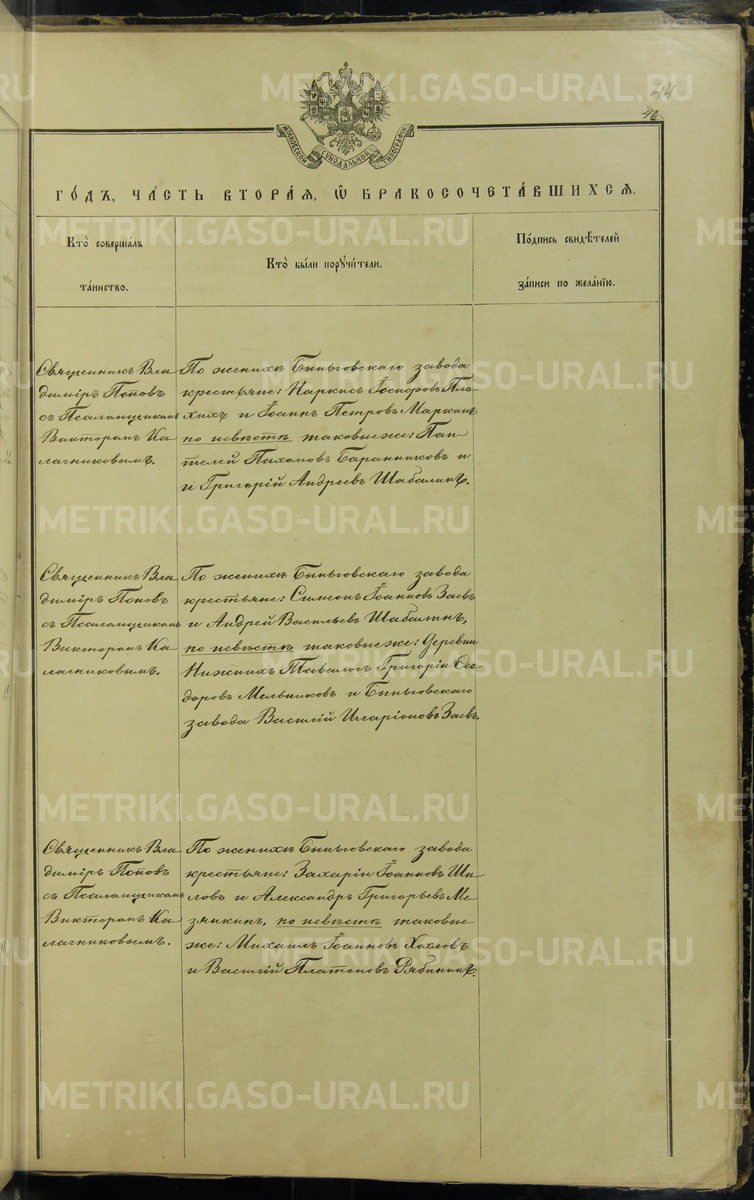 44
46
МОСКОВСКОЙ СѴНОДАЛЬНОЙ ТИПОГРАФІИ
ГО́ДЪ, ЧА́СТЬ ВТОРА́Ѧ, Ѽ БРАКОСОЧЕТА́ВШИХСѦ.
Кто̀ соверша́лъ
та́инство.
Кто̀ бы́ли порꙋчи́тели.
По́дпись свидѣ́телей
за́писи по жела́нїю.
Священникъ Вла-
димiръ Поповъ
съ Псаломщикомъ
Викторомъ Ка-
лачниковымъ.
По женихѣ Быньговскаго завода
крестьяне: Наркисъ Іосифовъ Пла-
хихъ и Іоаннъ Петровъ Маркинъ
по невѣстѣ таковые же: Пан-
телей Пахомовъ Баранниковъ и
и Григорій Андреевъ Шабалинъ.
Священникъ Вла-
димiръ Поповъ
съ Псаломщикомъ
Викторомъ Ка-
лачниковымъ.
По женихѣ Быньговскаго завода
крестьяне: Симеонъ Іоанновъ Заевъ
и Андрей Васильевъ Шабалинъ,
по невѣстѣ таковые же: Деревни
Нижнихъ Тавологъ Григорій Ѳео-
доровъ Мельниковъ и Быньговскаго
завода Василій Иларіоновъ Заевъ.
Священникъ Вла-
димiръ Поповъ
съ Псаломщикомъ
Викторомъ Ка-
лачниковымъ.
По женихѣ Быньговскаго завода
крестьяне: Захарій Іоанновъ Ши-
ловъ и Александръ Григорьевъ Ме-
зянкинъ, по невѣстѣ таковые
же: Михаилъ Іоанновъ Хохловъ
и Василій Платоновъ Рябининъ.
METRIKI.GASO-URAL.RU